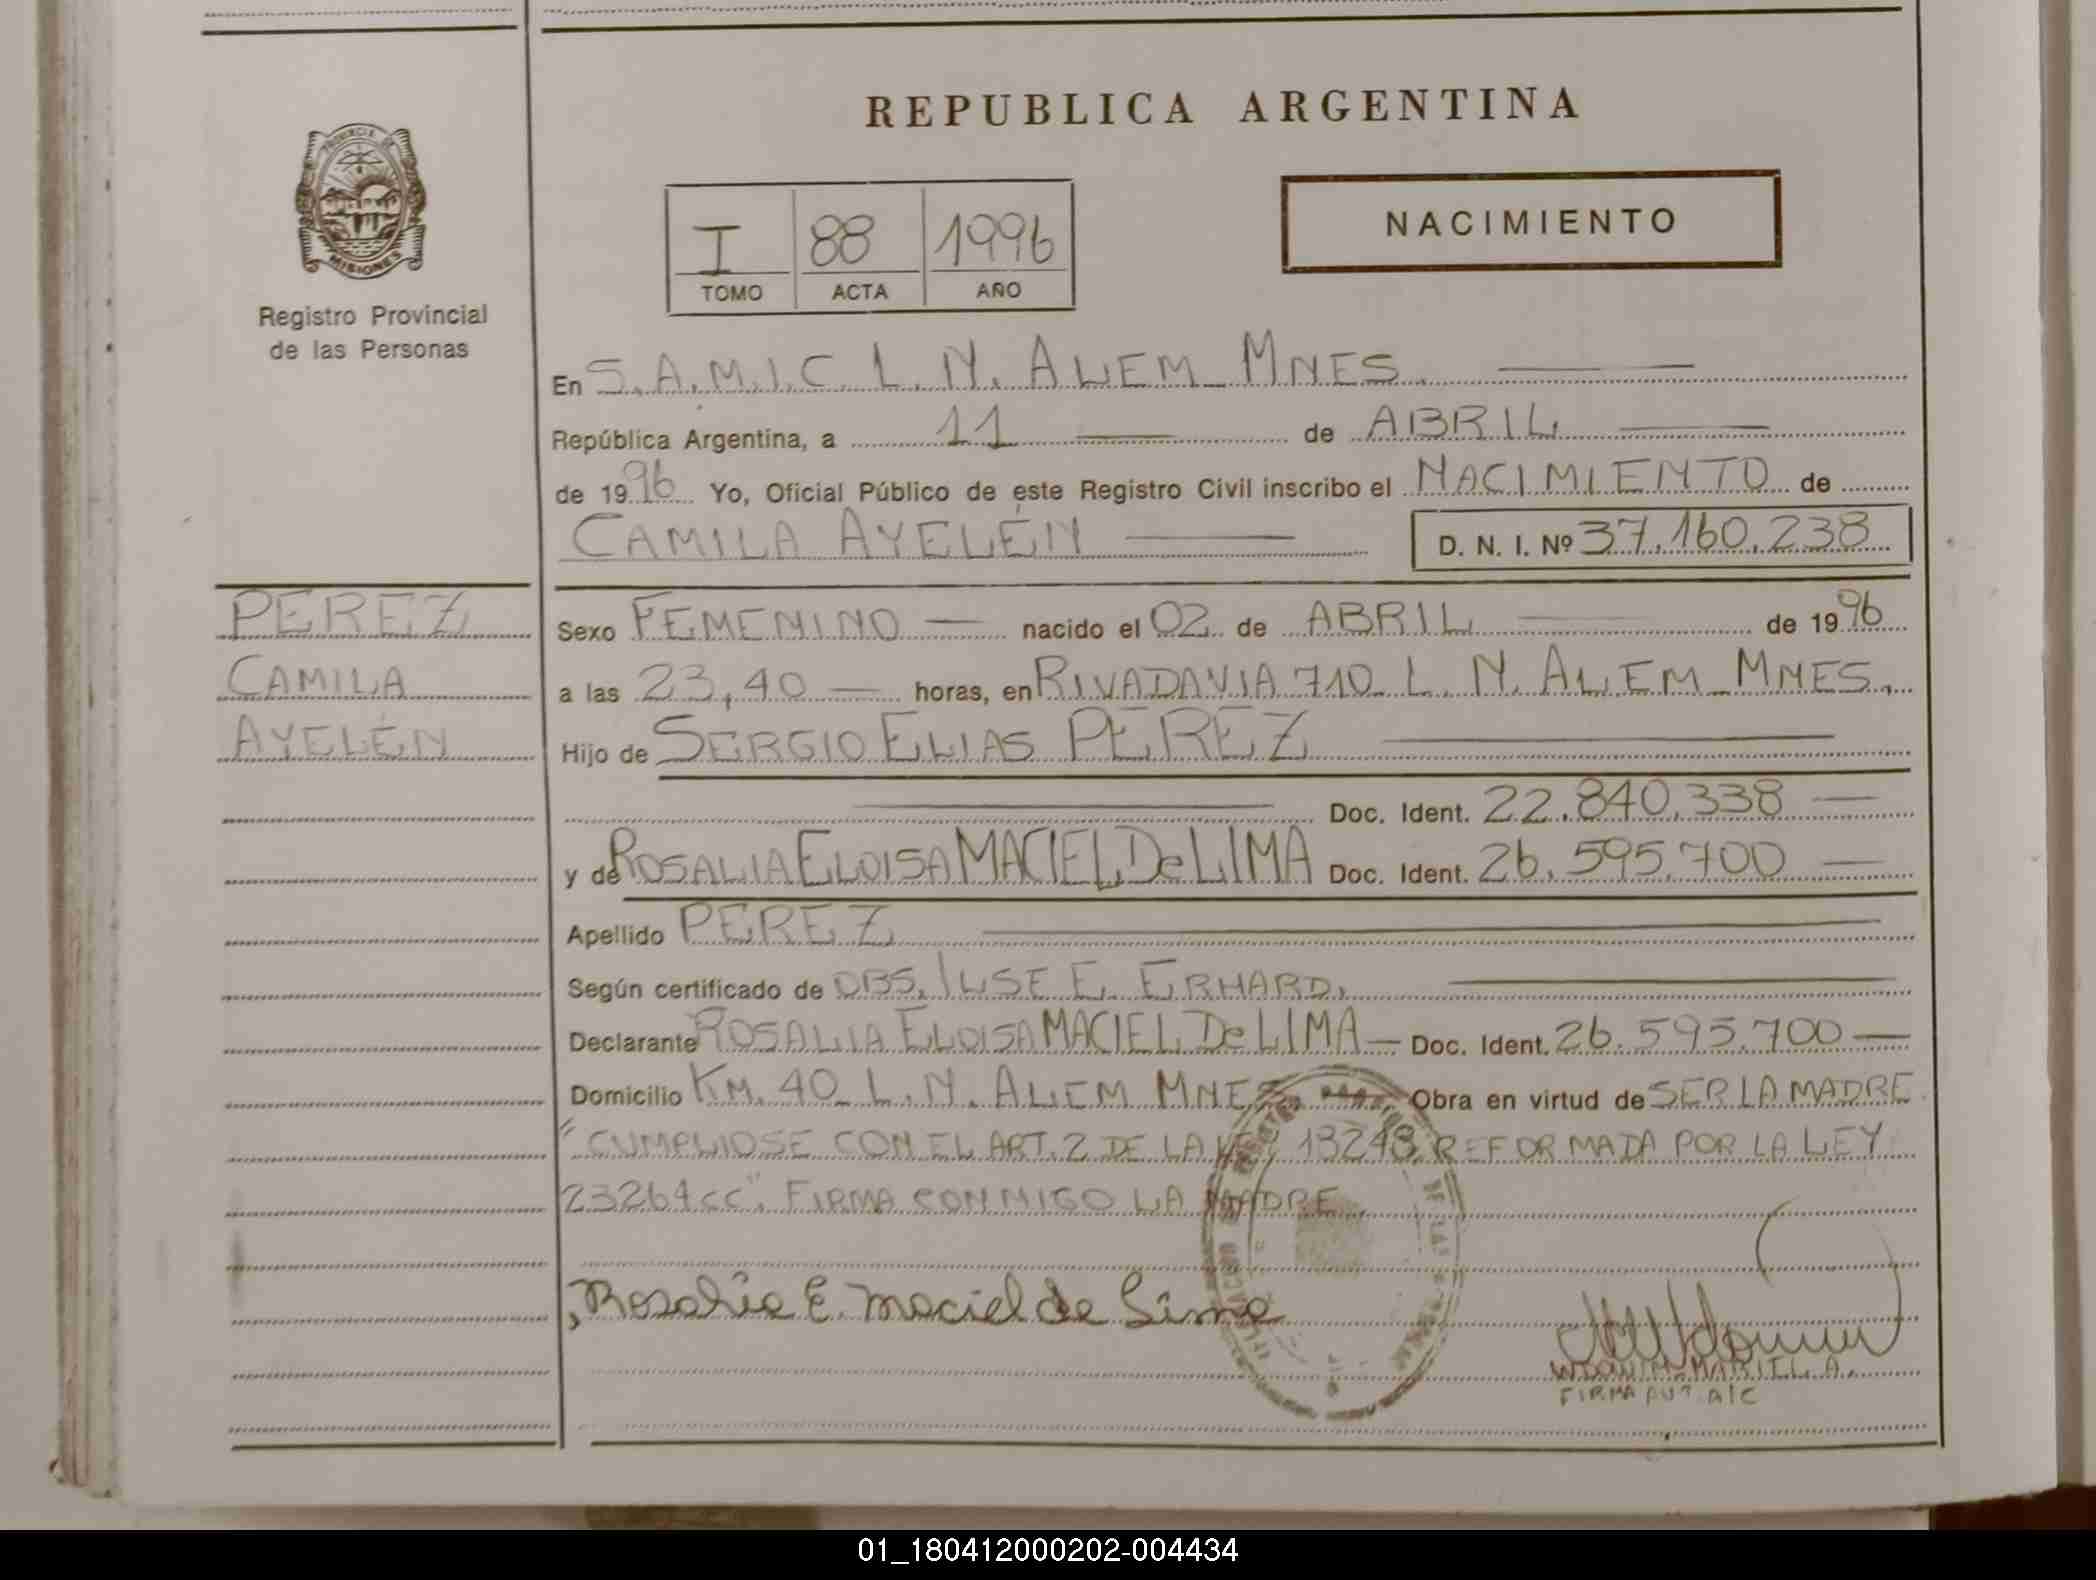 REPUBLICA ARGENTINA
PROVINCIA DE
MISIONES
Registro Provincial
de las Personas
I 88 1996
TOMO ACTA AÑO
NACIMIENTO
En S.A.M.I.C. L. N. ALEM_MNES.
República Argentina, a 11 de ABRIL
de 1996 Yo, Oficial Público de este Registro Civil inscribo el NACIMIENTO de
CAMILA AYELÉN D. N. I. Nº 37.160.238
PEREZ
CAMILA
AYELÉN
Sexo FEMENINO nacido el 02 de ABRIL de 1996
a las 23,40 horas, en RIVADAVIA 710_L. N. ALEM_MNES.
Hijo de SERGIO ELIAS PEREZ
Doc. Ident. 22.840.338
y de ROSALIA ELOISA MACIEL De LIMA Doc. Ident. 26.595.700
Apellido PEREZ
Según certificado de OBS. ILSE E. ERHARD.
Declarante ROSALIA ELOISA MACIEL De LIMA Doc. Ident. 26.595.700
Domicilio KM. 40_L. N. ALEM MNES Obra en virtud de SER LA MADRE
"CUMPLIOSE CON EL ART. 2 DE LA LEY 13248 REFORMADA POR LA LEY
23264cc". FIRMA CONMIGO LA MADRE.
Rosalia E. Maciel de Lima
MARIEL A.
FIRMA AUT. A/C
01_180412000202-004434